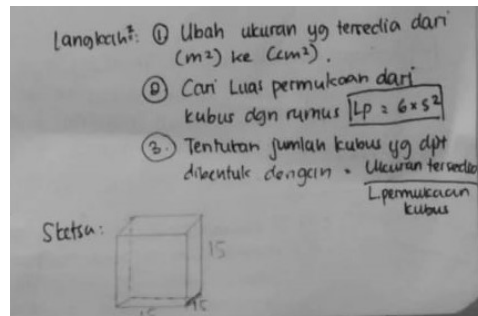 Langkah²: ① Ubah ukuran yg tersedia dari
(m²) ke (cm²).
② Cari Luas permukaan dari
kubus dgn rumus Lp = 6 x s²
③. Tentukan jumlah kubus yg dpt
dibentuk dengan = Ukuran tersedia
L.permukaan
kubus
Sketsa:
15
15
15